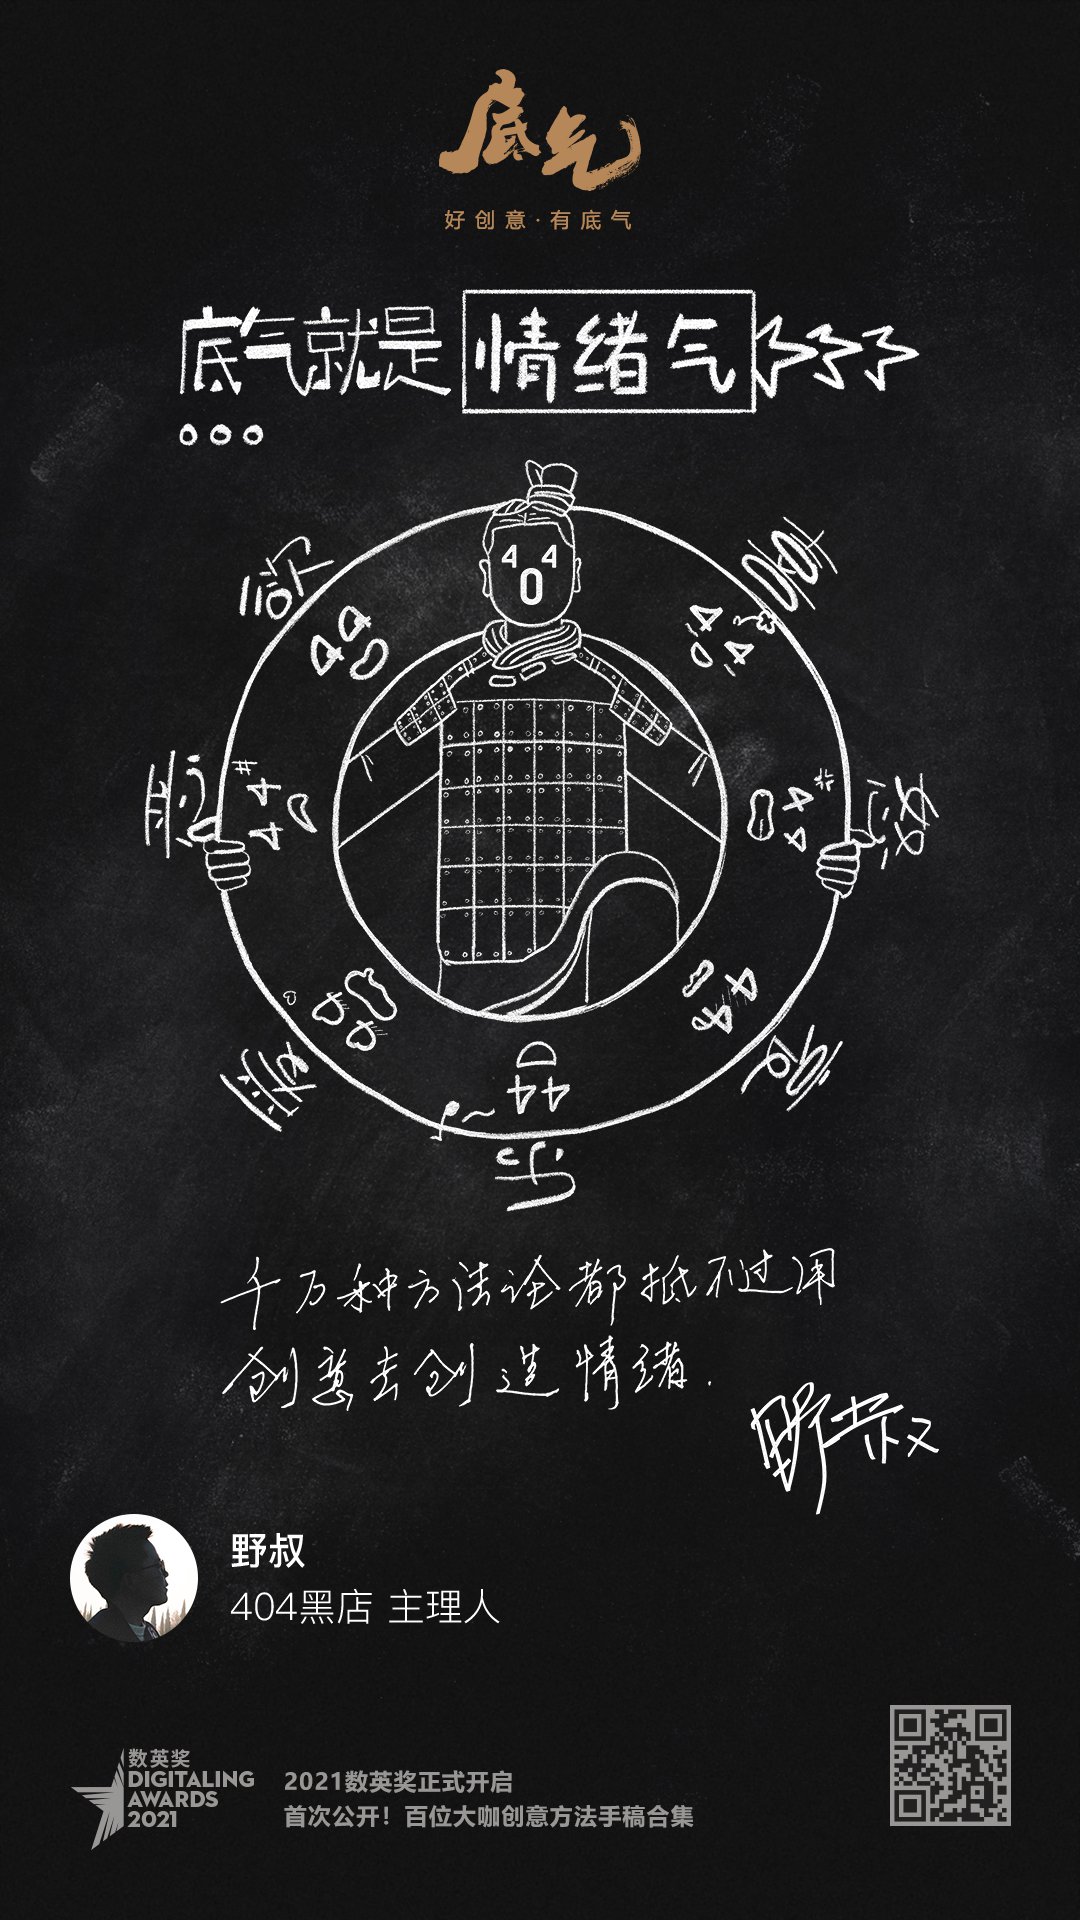 底气
好创意·有底气
底气就是情绪气
欲
喜
恶
怒
爱
哀
乐
千万种方法论都抵不过用
创意去创造情绪.
野叔
野叔
404黑店 主理人
数英奖
DIGITALING
AWARDS
2021
2021数英奖正式开启
首次公开！百位大咖创意方法手稿合集